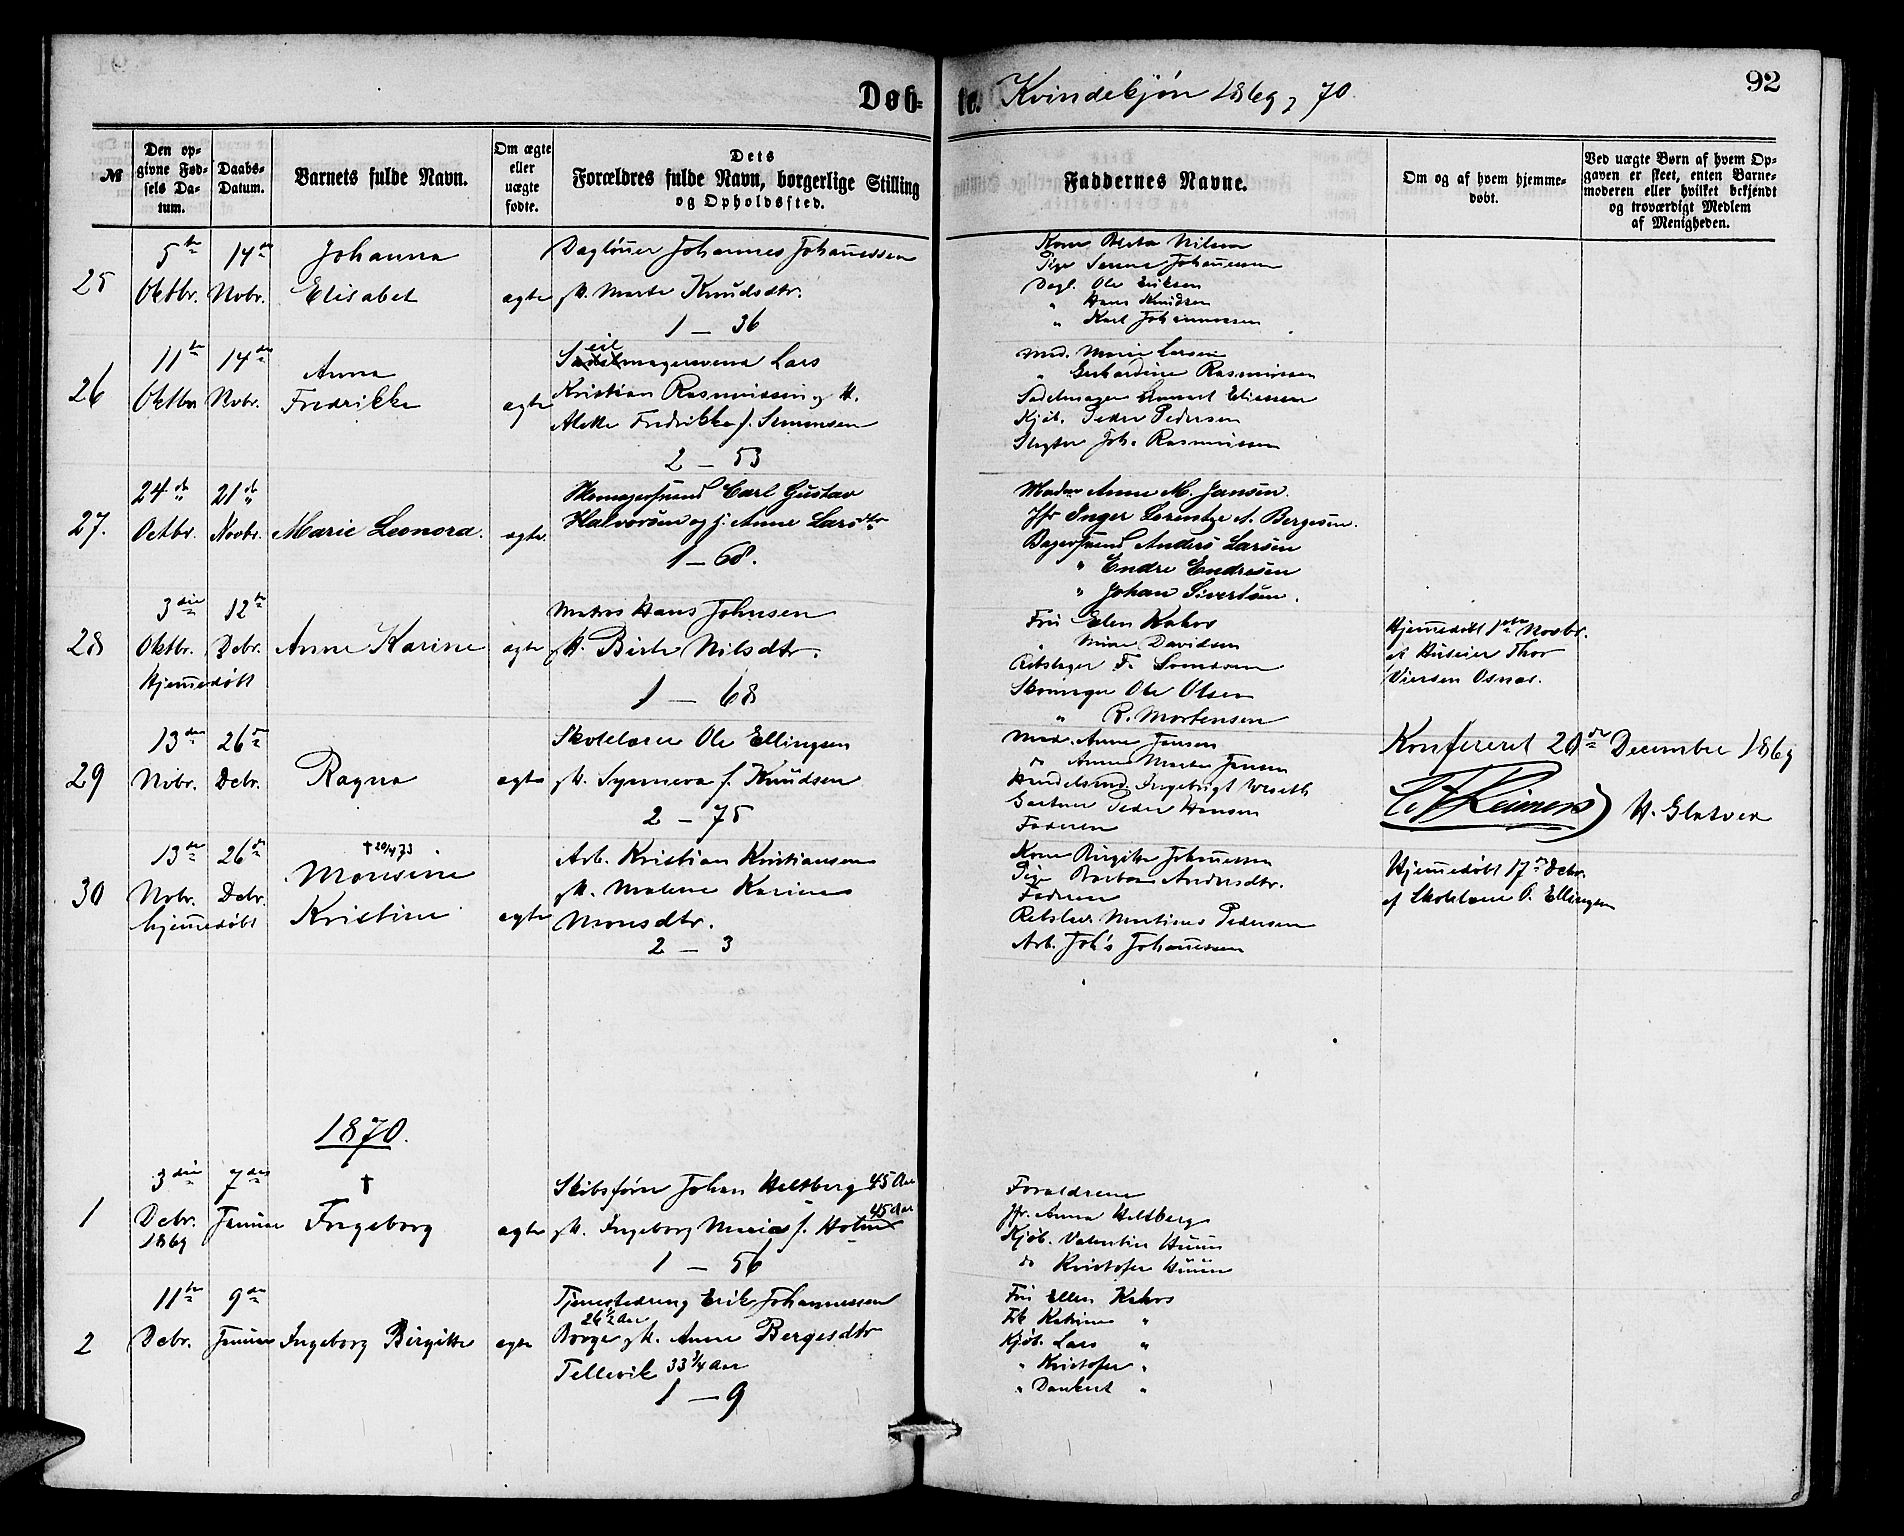 92
Døb- te. Kvindekjön 1869, 70
№
Den op-
givne Fød-
sels Da-
tum.
Daabs-
Datum.
Barnets fulde Navn.
Om ægte
eller
uægte
fødte.
Dets
Forældres fulde Navn, borgerlige Stilling
og Opholdssted.
Faddernes Navne.
Om og af hvem hjemme-
døbt.
Ved uægte Børn af hvem Op-
gaven er skeet, enten Barne-
moderen eller hvilket bekjendt
og troværdigt Medlem
af Menigheden.
25
5te
Oktbr.
14de
Novbr.
Johanna
Elisabet
ægte
Daglöner Johannes Johannessen
H. Marte Knudsdtr.
1 — 36
Kone Berta Nilsen
Pige Serine Johannessen
Dagl. Ole Eriksen
" Hans Knudsen
" Karl Johannessen
26
11te
Oktbr
14de
Novbr.
Anna
Fredrikke
ægte
eil
magersvend Lars
Kristian Rasmussen og H.
Alette Fredrikke f. Simonsen
2 — 53
Mad. Marie Larsen
" Gerhardine Rasmussen
Sadelmager Eliassen
Kjöb. Peder Pedersen
Slagter Joh. Rasmussen
27.
24de
Octbr.
21de
Novbr.
Marie Leonora.
ægte.
Skomagersvend Carl Gustav
Halvorsen og H. Anne Larsdtr
1 — 68.
Madam Anne M. Jansen.
Jfr Inger Lorentze A. Bergesen.
Bagersvend Anders Larsen
" Endre Endresen
" Johan Sivertsen.
28
3die
Oktbr.
Hjemmedöbt
12te
Debr.
Anne Karine
ægte
Matros Hans Johnsen
H. Berte Nilsdtr.
1 — 68
Fru Elen Kahrs
" Mine Davidsen
Skomager Ole Olsen
" R. Mortensen
Hjemmedöbt 1ste Novbr.
af Huseier Thor
29
13de
Nvbr.
26de
Debr.
Ragna
ægte
Skolelærer Ole Ellingsen
H. Synneva f. Knudsen
2 — 75
Mad. Anne Jensen
do Anne Marte Jensen
Handelsmd. Ingebrigt
Gartner Peder Hansen
Faderen
Konfereret 20de Decembr 1869
Reimers H.
30
13de
Nvbr.
hjemmedöbt
26de
Debr.
† 20/4 73
Monsine
Kristine
ægte
Arb. Kristian Kristiansen
H. Malene Karine
Monsdtr.
2 — 3
Kone Birgitte Johannessen
Pige Barbra Andersdtr.
Faderen
Martinus Pedersen
Arb. Joh's Johannessen
Hjemmedöbt 17de Debr.
af Skolelærer O. Ellingsen
1870.
1
3die
Debr.
1869
7de
Januar
†
Ingeborg
ægte
Skibsförer Johan Heltberg 45 Aar
H. Ingeborg Maria f. Holm 45 Aar
1 — 56
Forældrene
Jfr. Anna Heltberg
Kjöb. Valentin
do Kristofer
2
11te
Debr.
9de
Januar
Ingeborg Birgitte
ægte
Tjenestedreng Erik Johannessen
26½ Aar
Borge H. Anne Bergesdtr
Tellevik 33¾ Aar
1 — 9
Fru Ellen Kahrs
Frk Katrine "
Kjöb. Lars "
" Kristofer "
" Dankert "